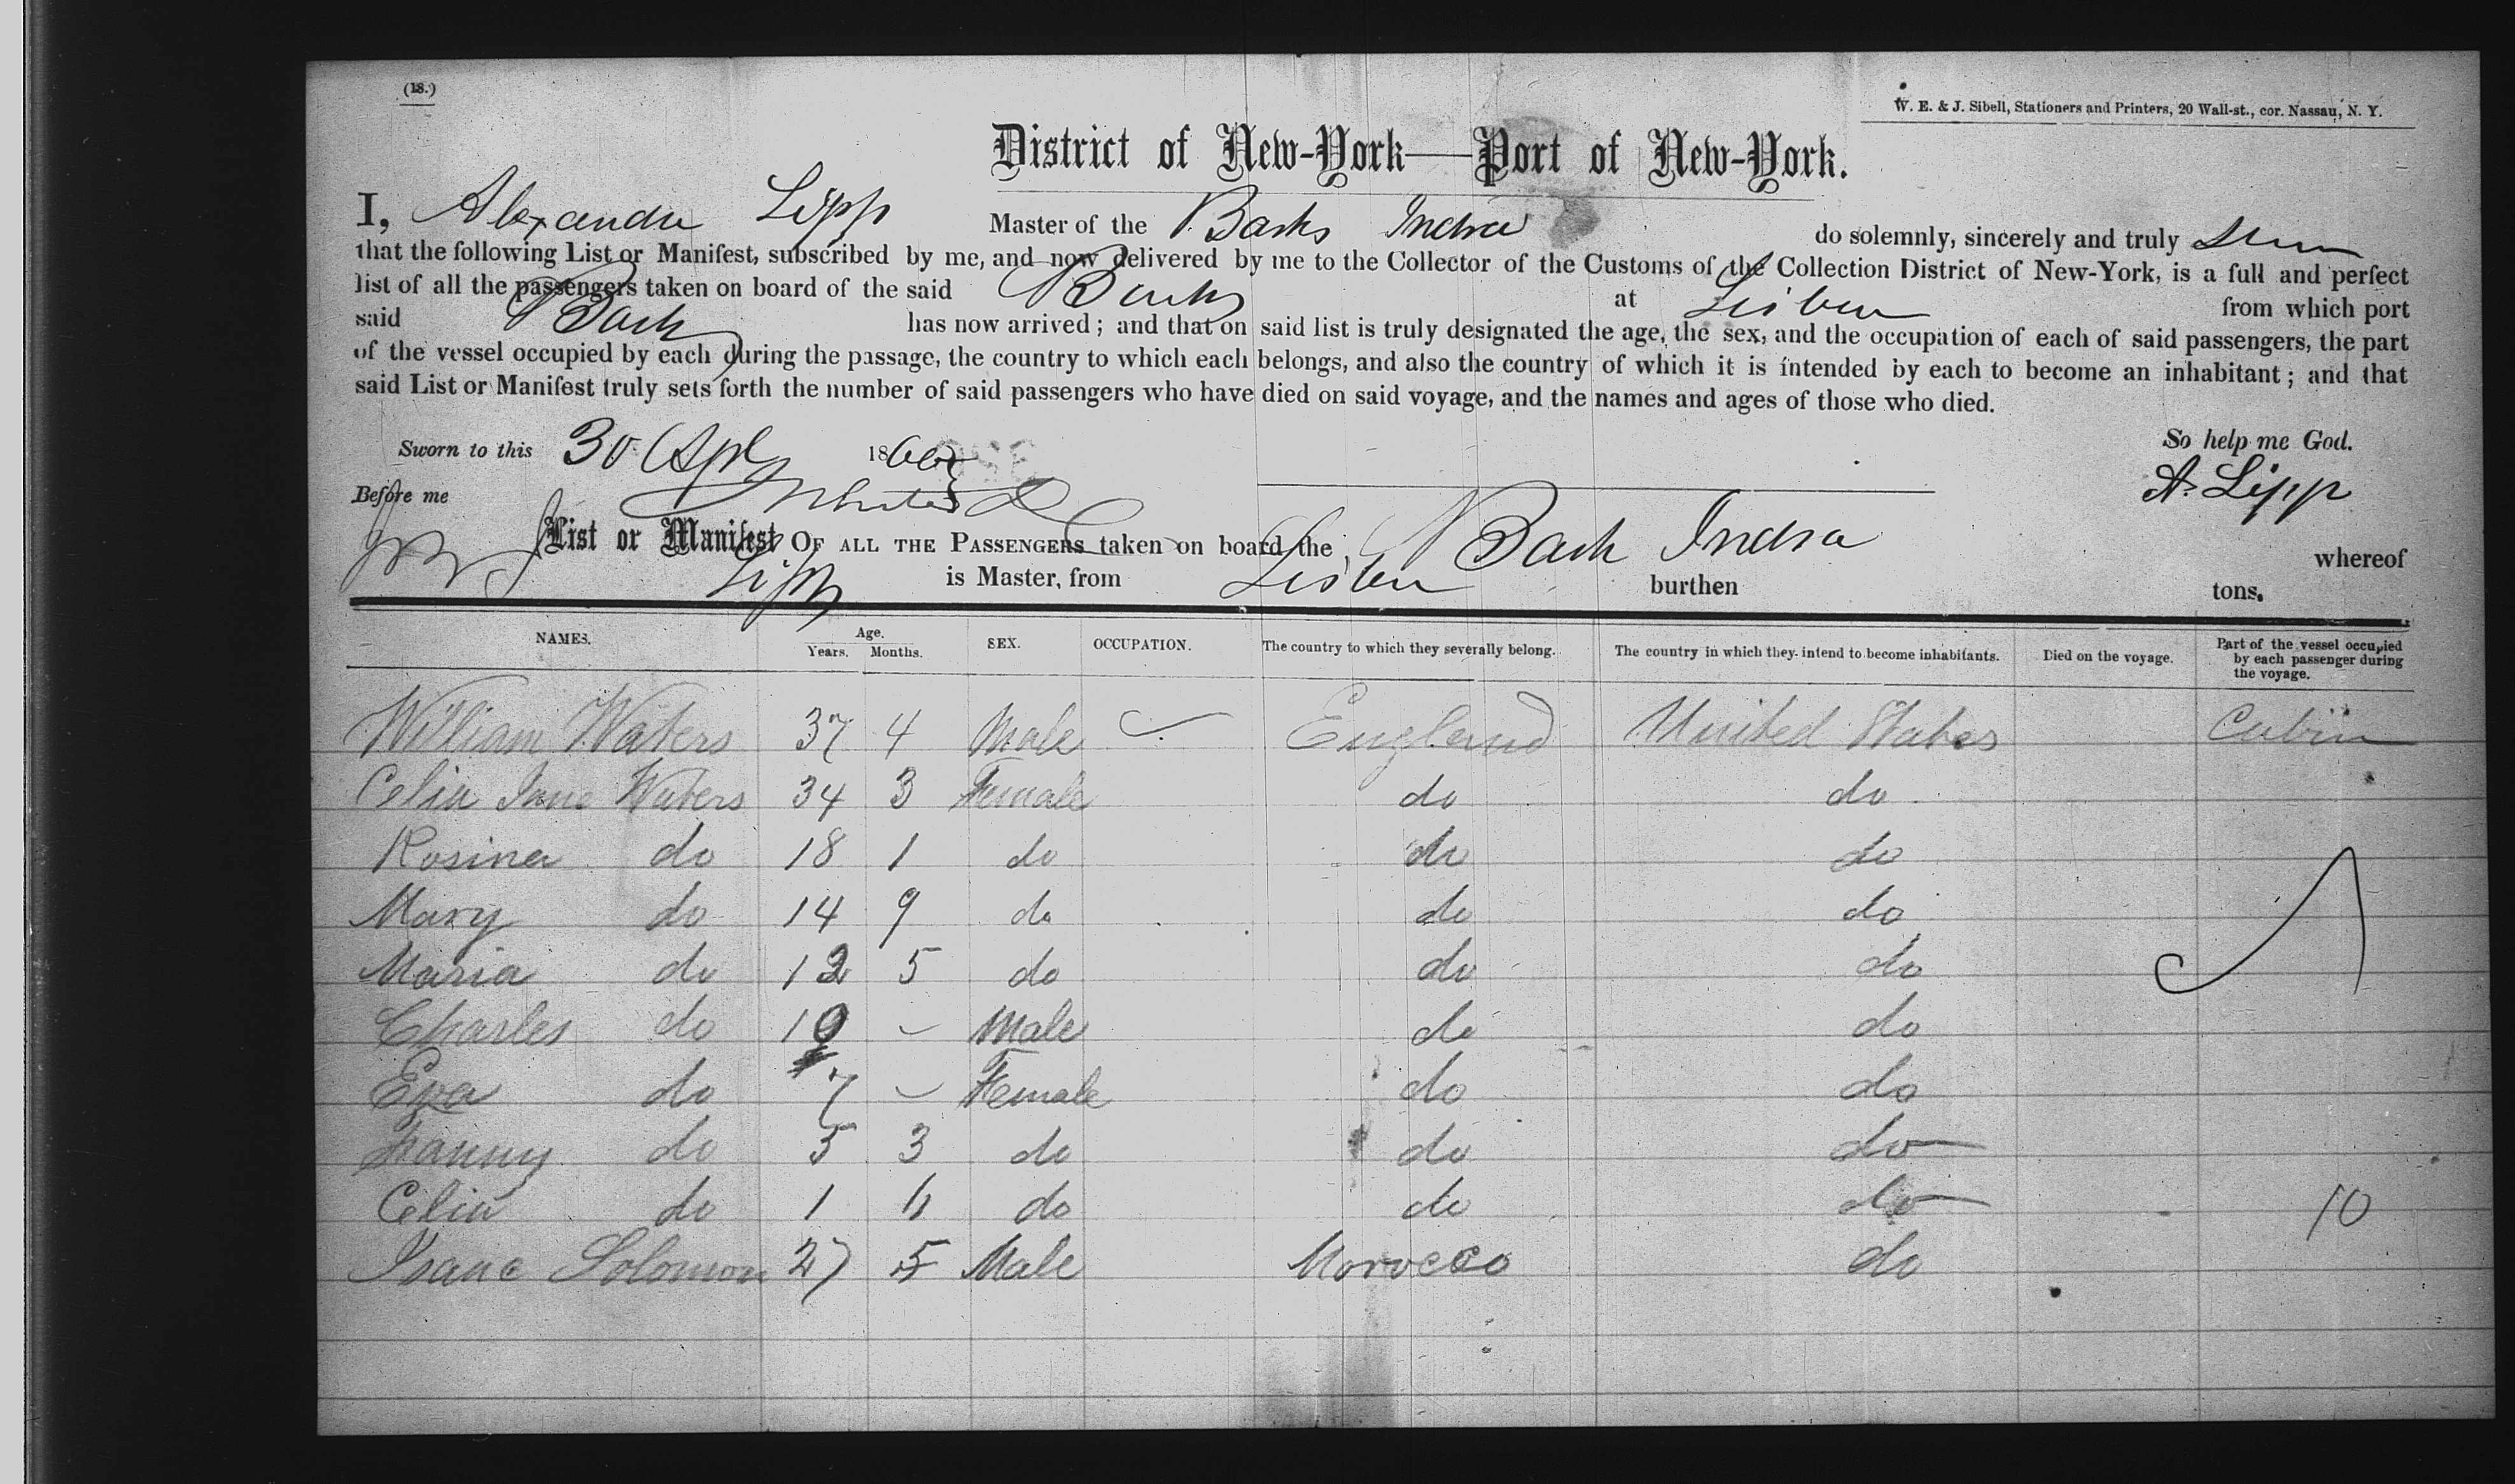 (18.)
W. E. & J. Sibell, Stationers and Printers, 20 Wall-st., cor. Nassau, N. Y.
District of New-York—Port of New-York.
I, Alexander Lipp Master of the Bark Indra do solemnly, sincerely and truly
that the following List or Manifest, subscribed by me, and now delivered by me to the Collector of the Customs of the Collection District of New-York, is a full and perfect
list of all the passengers taken on board of the said Bark at Lisbon from which port
said Bark has now arrived; and that on said list is truly designated the age, the sex, and the occupation of each of said passengers, the part
of the vessel occupied by each during the passage, the country to which each belongs, and also the country of which it is intended by each to become an inhabitant; and that
said List or Manifest truly sets forth the number of said passengers who have died on said voyage, and the names and ages of those who died.
Sworn to this 30 Apl 1866 So help me God.
Before me A. Lipp
List or Manifest OF ALL THE PASSENGERS taken on board the Bark Indra whereof
Lipp is Master, from Lisbon burthen tons.
NAMES. Age. Years. Months. SEX. OCCUPATION. The country to which they severally belong. The country in which they intend to become inhabitants. Died on the voyage. Part of the vessel occupied by each passenger during the voyage.
William Waters 37 4 Male England United States Cabin
Celia Jane Waters 34 3 Female do do
Rosina do 18 1 do do do
Mary do 14 9 do do do
Maria do 12 5 do do do
Charles do 10 – Male do do
Eva do 7 – Female do do
Fanny do 5 3 do do do
Celia do 1 do do do 10
Isaac Solomon 27 5 Male Morocco do